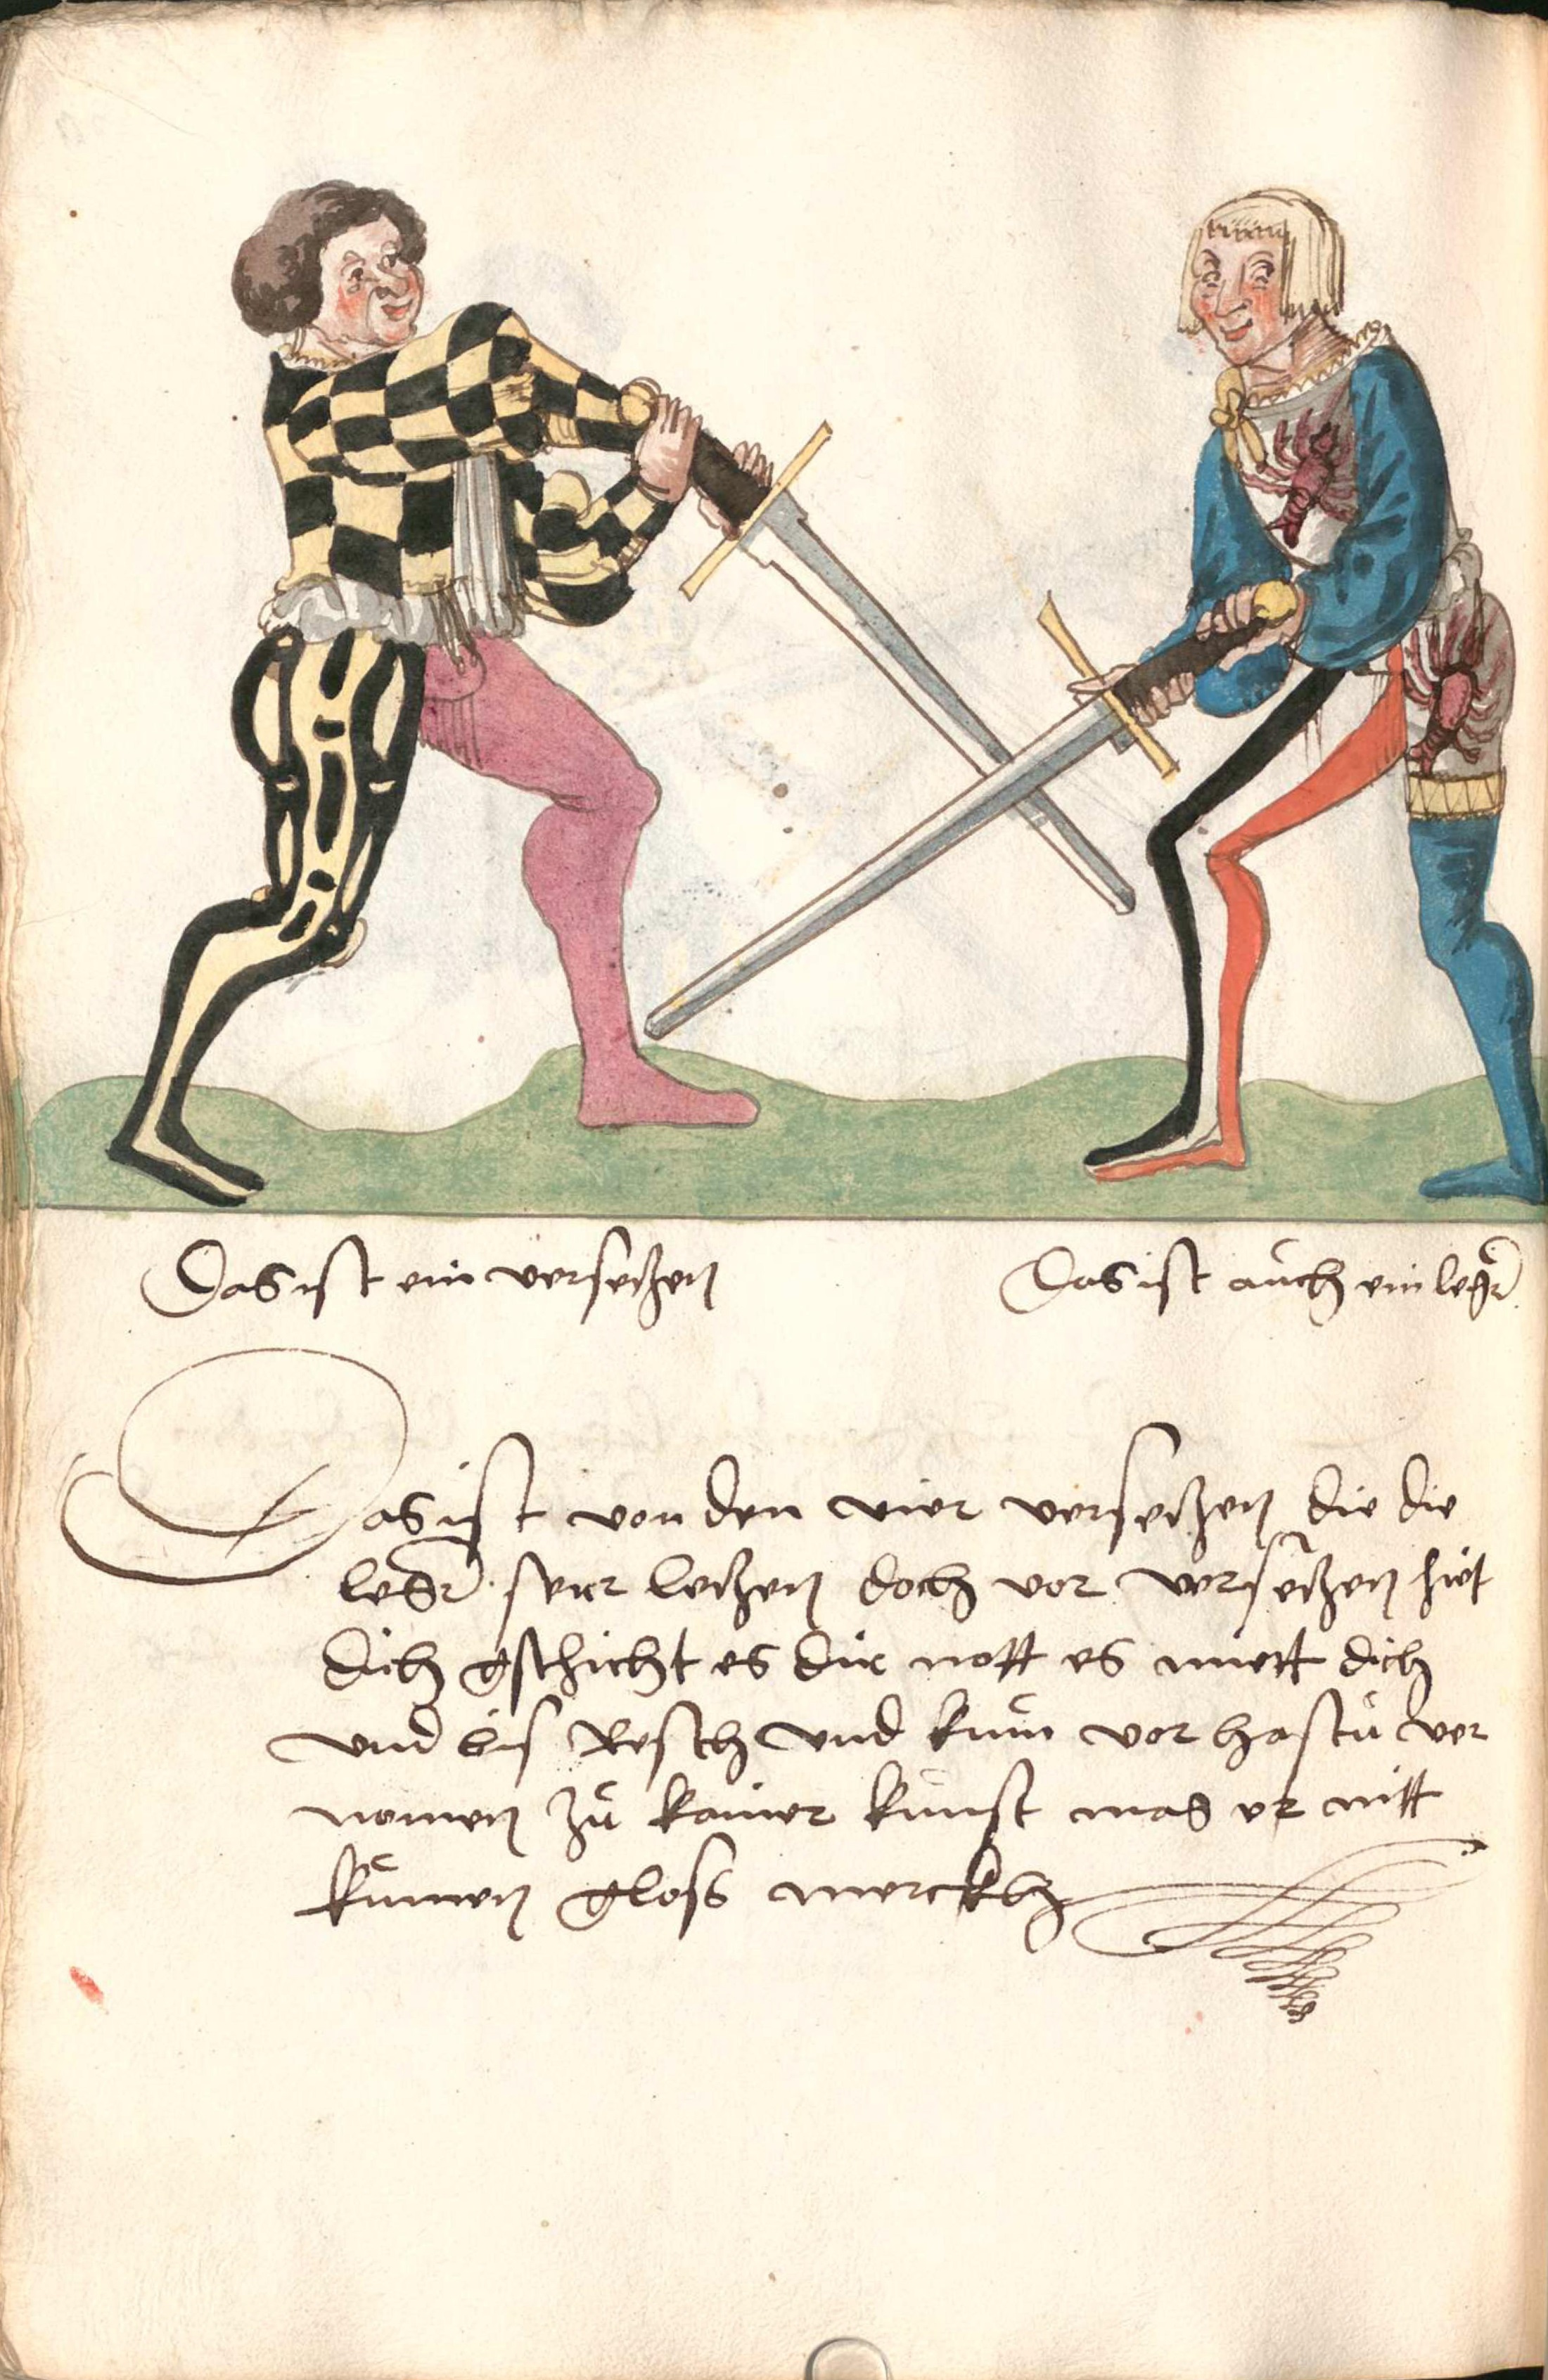 Das ist ein versetzen
Das ist auch ein leger
Das ist von den vier versetzen die die
leger seer letzen doch vor versetzen hiet
dich gschicht es dir nott es miett dich
vnd bis Resch vnd kum vor hastu ver
nomen zu kainer kunst mag er nitt
kumen gloss merckh